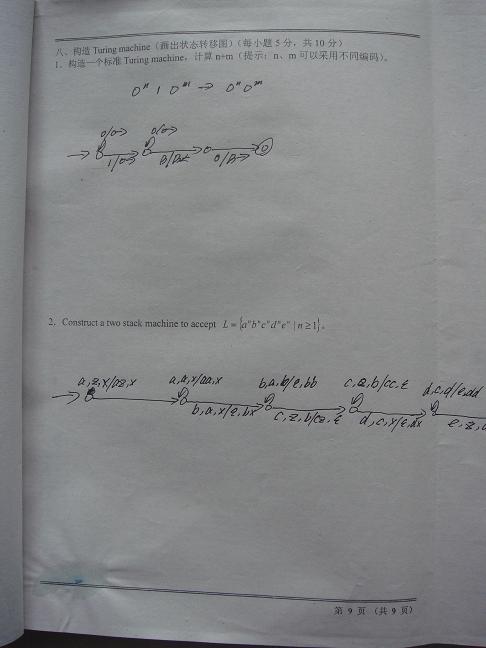 八、构造 Turing machine（画出状态转移图）（每小题 5 分，共 10 分）
1．构造一个标准 Turing machine，计算 n+m（提示：n、m 可以采用不同编码）。
0ⁿ 1 0ᵐ → 0ⁿ 0ᵐ
0/0→ 0/0→
1/0→ B/B← 0/B→
2．Construct a two stack machine to accept L = {aⁿbⁿcⁿdⁿeⁿ | n ≥ 1}。
a,z,x/az,x a,a,x/aa,x b,a,b/ε,bb c,c,b/cc,ε d,c,d/ε,dd
b,a,x/ε,bx c,z,b/cz,ε d,c,x/ε,dx e,z,
第 9 页 （共 9 页）